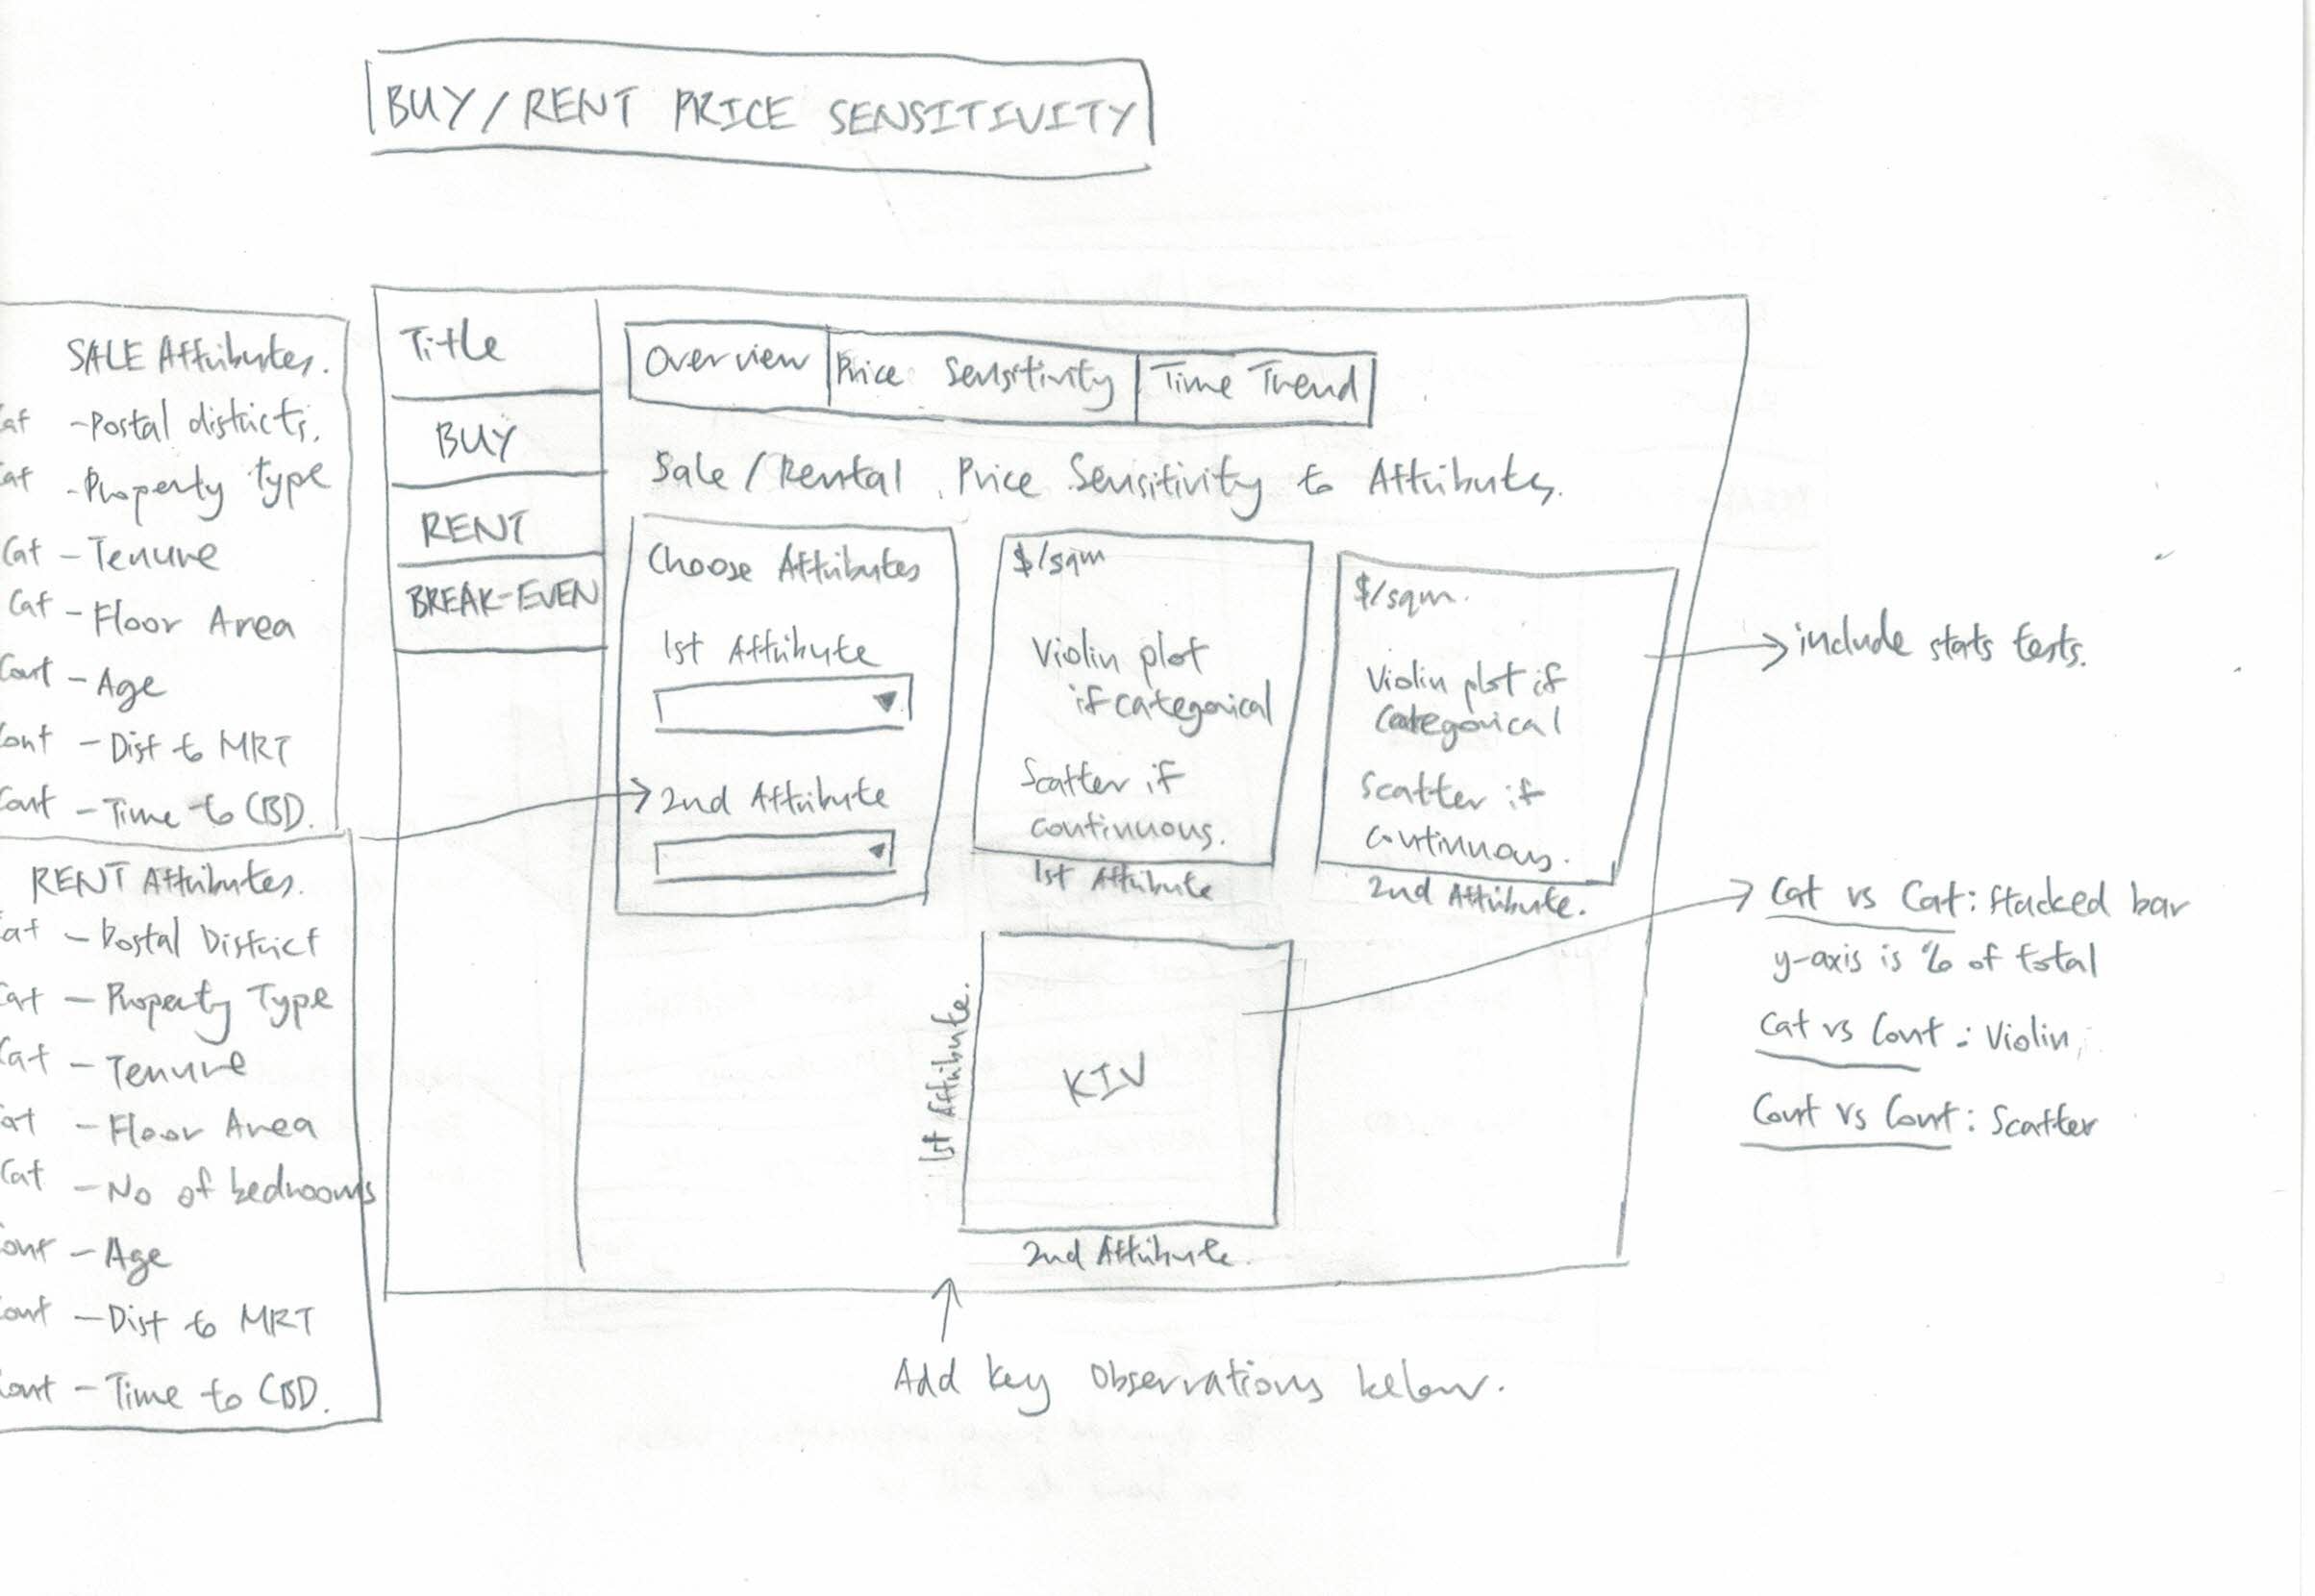 BUY/RENT PRICE SENSITIVITY
SALE Attributes.
Cat - Postal districts.
Cat - Property type
Cat - Tenure
Cat - Floor Area
Cont - Age
Cont - Dist to MRT
Cont - Time to CBD.
RENT Attributes.
Cat - Postal District
Cat - Property Type
Cat - Tenure
Cat - Floor Area
Cat - No of bedrooms
Cont - Age
Cont - Dist to MRT
Cont - Time to CBD.
Title
BUY
RENT
BREAK-EVEN
Overview
Price Sensitivity
Time Trend
Sale/Rental Price Sensitivity to Attributes.
Choose Attributes
1st Attribute
2nd Attribute
$/sqm
Violin plot
if categorical
Scatter if
continuous.
1st Attribute
$/sqm.
Violin plot if
categorical
Scatter if
continuous.
2nd Attribute.
1st Attribute.
KIV
2nd Attribute.
include stats tests.
Cat vs Cat: Stacked bar
y-axis is % of total
Cat vs Cont: Violin
Cont vs Cont: Scatter
Add key observations below.